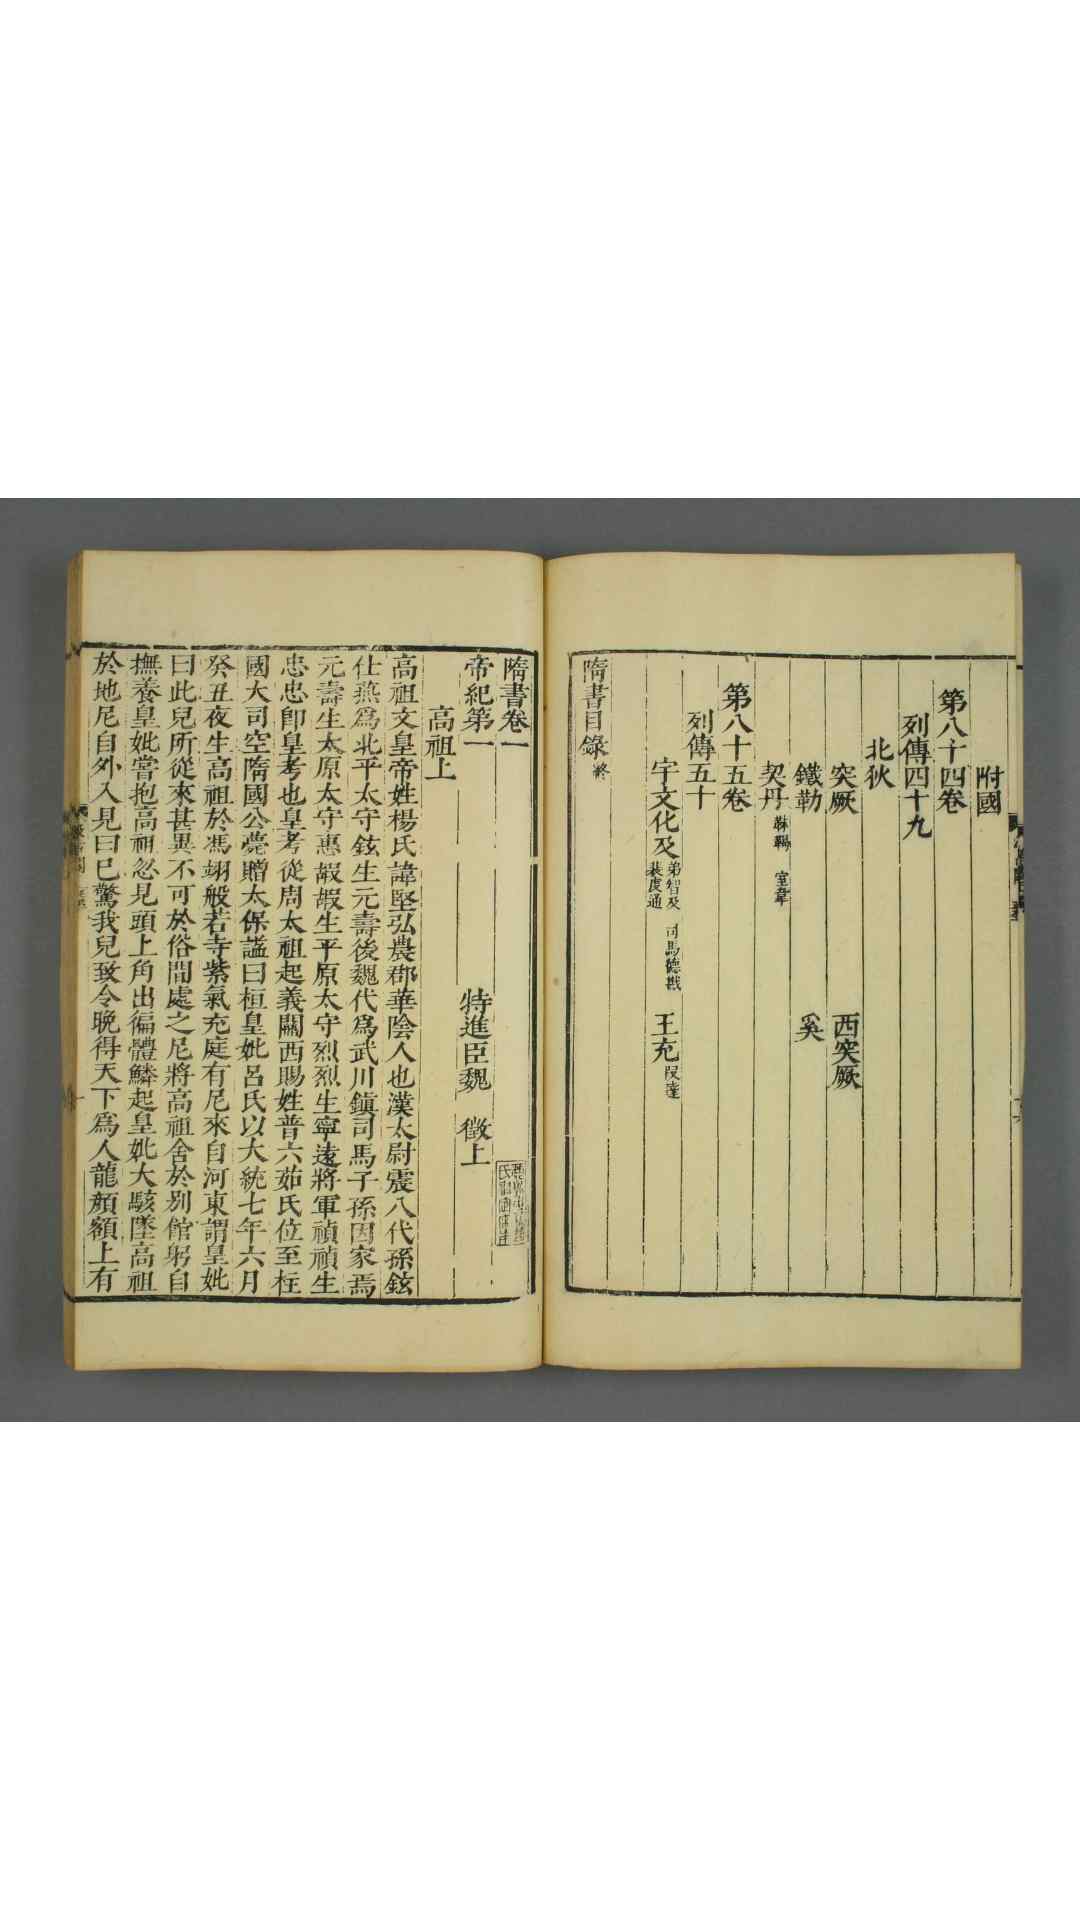 附國
第八十四卷
列傳四十九
北狄
突厥 西突厥
鐵勒 奚
契丹 靺鞨 室韋
第八十五卷
列傳五十
宇文化及 弟智及 司馬德戡 裴虔通 王充 段達
隋書目錄 終
隋書卷一
帝紀第一 特進臣魏 徵上
高祖上
高祖文皇帝姓楊氏諱堅弘農郡華陰人也漢太尉震八代孫鉉
仕燕爲北平太守鉉生元壽後魏代爲武川鎮司馬子孫因家焉
元壽生太原太守惠嘏嘏生平原太守烈烈生寧遠將軍禎禎生
忠忠卽皇考也皇考從周太祖起義關西賜姓普六茹氏位至柱
國大司空隋國公薨贈太保謚曰桓皇妣呂氏以大統七年六月
癸丑夜生高祖於馮翊般若寺紫氣充庭有尼來自河東謂皇妣
曰此兒所從來甚異不可於俗間處之尼將高祖舍於別館躬自
撫養皇妣嘗抱高祖忽見頭上角出徧體鱗起皇妣大駭墜高祖
於地尼自外入見曰已驚我兒致令晚得天下爲人龍顏額上有